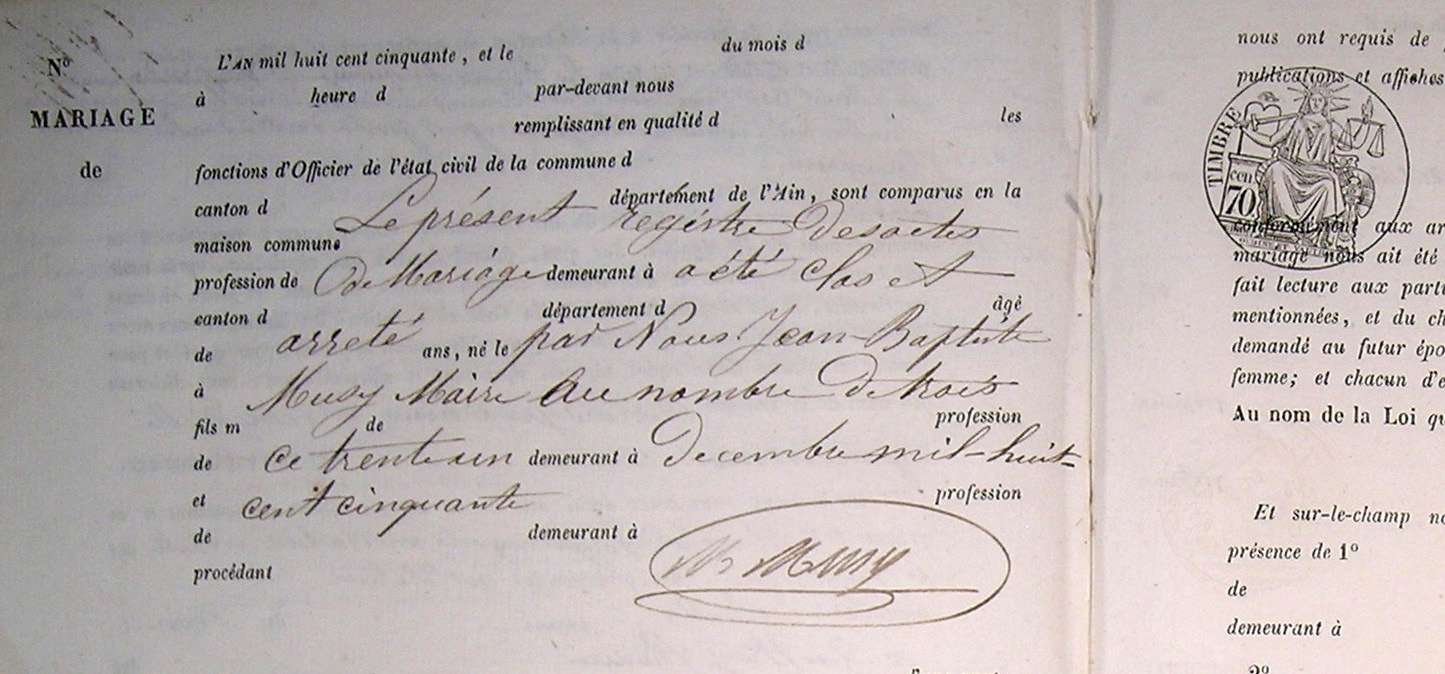 Nº
MARIAGE
de
L'AN mil huit cent cinquante, et le du mois d
à heure d par-devant nous
remplissant en qualité d les
fonctions d'Officier de l'état civil de la commune d
canton d département de l'Ain, sont comparus en la
Le présent registre des actes
maison commune
profession de de Mariage demeurant à a été clos et
canton d département d âgé
de arreté ans, né le par Nous Jean Baptiste
à Musy Maire au nombre de trois
fils m de profession
de ce trente un demeurant à Decembre mil-huit-
et cent cinquante profession
de demeurant à
procédant
Musy
nous ont requis de
publications et affiches
TIMBRE
cen
70
conformément aux ar
mariage nous ait été
fait lecture aux parti
mentionnées, et du ch
demandé au futur épo
femme; et chacun d'e
Au nom de la Loi qu
Et sur-le-champ no
présence de 1º
de
demeurant à
2º